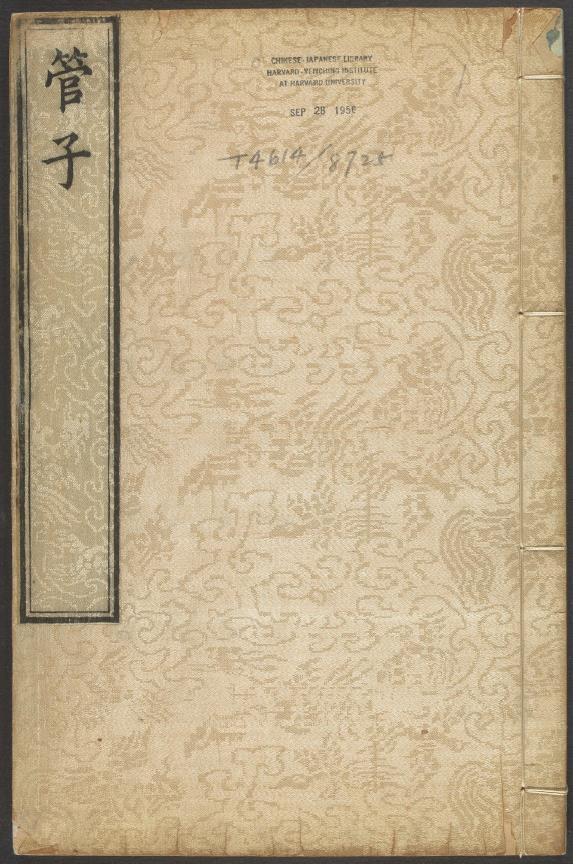 管子
CHINESE-JAPANESE LIBRARY
HARVARD-YENCHING INSTITUTE
AT HARVARD UNIVERSITY
SEP 28 1956
T4614/8725